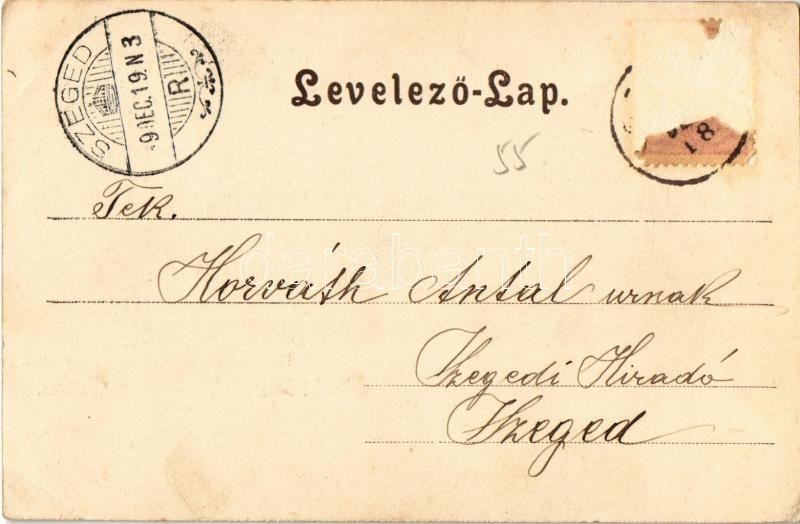 SZEGED
R
9 DEC. 19. N 3
Levelező-Lap.
18
55
Tek.
Horváth Antal urnak
Szegedi Hiradó
Szeged
darabanth